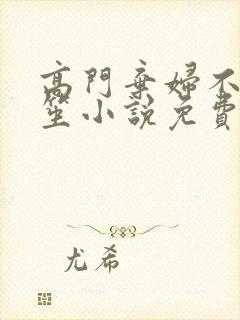 高門棄婦不
笙小說免費
尤希